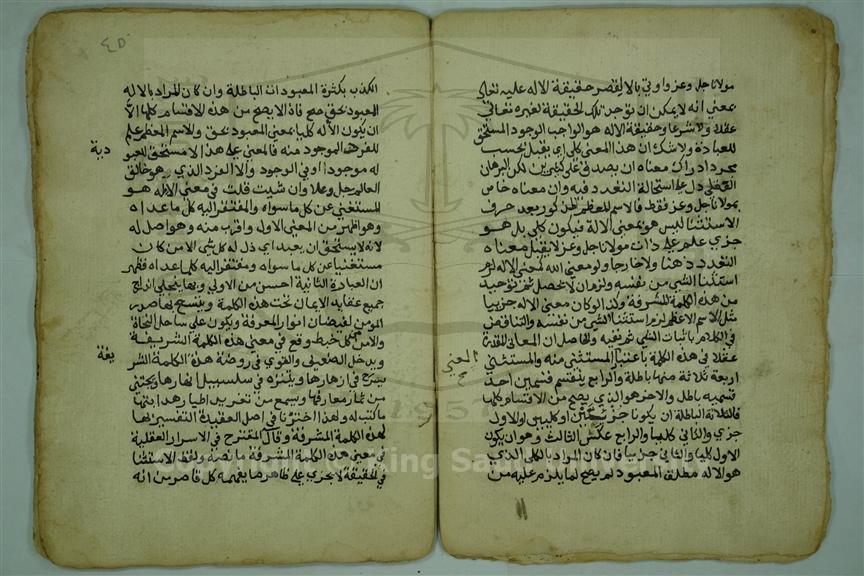 مولانا جل وعز واوتي بالا لقصر حقيقة الاله عليه تعالى
بمعنى انه لا يمكن ان توجد تلك الحقيقة لغيره تعالى
عقلا ولا شرعا وحقيقة الاله هو الواجب الوجود المستحق
للعبادة ولا شك ان هذا المعنى كلي اي يقبل بحسب
مجرد ادراك معناه ان يصدق على كثيرين لكن البرهان
العقلي دل على استحالة التعدد فيه وان معناه خاص
بمولانا جل وعز فقط فالاسم المعظم المذكور بعد حرف
الاستثنا ليس هو بمعنى الالة فيكون كلي بل هو
جزي علم على ذات مولانا جل وعز لا يقبل معناه
التعدد ذهنا ولا خارجا ولو معنى الله لمعنى الاله لزم
استثنا الشي من نفسه ولزم ان لا يحصل تحز توحيد
من هذه الكلمة المشرفة وكذا لو كان معنى الاله جزييا
مثل الاسم الاعظم لزم استثنا الشي من نفسه والتناقض
في الكلام باثبات الشي ثم نفيه والحاصل ان المعاني المقدرة
عقلا في هذه الكلمة باعتبار المستثنى منه والمستثنى
المعني
اربعة ثلاثة منها باطلة والرابع ينقسم قسمين احد
قسميه باطل والاخر هو الذي يصح من الاقسام كلها
فالثلاثة الباطلة ان يكونا جزيين او كليين او الاول
جزي والثاني كليا والرابع عكس الثالث وهو ان يكون
الاول كليا والثاني جزييا فان كان المراد بالكلي الذي
هو الاله مطلق المعبود لم يصح لما يلزم عليه من
٤٥
الكذب بكثرة المعبودات الباطلة وان كان المراد بالاله
المعبود بحق صح فاذا لا يصح من هذه الاقسام كلها الا
ان يكون الاله كليا بمعنى المعبود بحق والاسم المعظم علم
للفرد الموجود منه فالمعنى على هذا لا مستحق للعبو
دية
له موجود او في الوجود الا الفرد الذي هو خالق
العالم جل وعلا وان شيت قلت في معنى الاله هو
المستغني عن كل ما سواه والمفتقر اليه كل ما عداه
وهو اظهر من المعنى الاول واقرب منه وهو اصل له
لانه لا يستحق ان يعبد اي يذل له كل شي الا من كان
مستغنيا عن كل ما سواه ومفتقر اليه كلما عداه فظهر
ان العبارة الثانية احسن من الاولى وبها ينجلي اندراج
جميع عقايد الايمان تحت هذه الكلمة ويتسع بها صدر
المومن لفيضان انوار المعرفة ويكون على ساحل النجاة
والامن كل خبط وقع في معنى هذه الكلمة الشريفة
ويدخل الضعيف والقوي في روضة هذه الكلمة الشر
يفة
يسرح في ازهارها ويتنزه في سلسبيل انهارها ويجتني
من ثمار معارفها ويسمع من تغريد اطيار هدايتها
ما كتب له ولهذا اخترنا في اصل العقيدة التفسير بها
لهذه الكلمة المشرفة وقال المقترح في الاسرار العقلية
في معنى هذه الكلمة المشرفة ما نصه ولفظ الاستثنا
في الحقيقة لا يجري على ظاهر ما يفهمه كل قاصر من انه